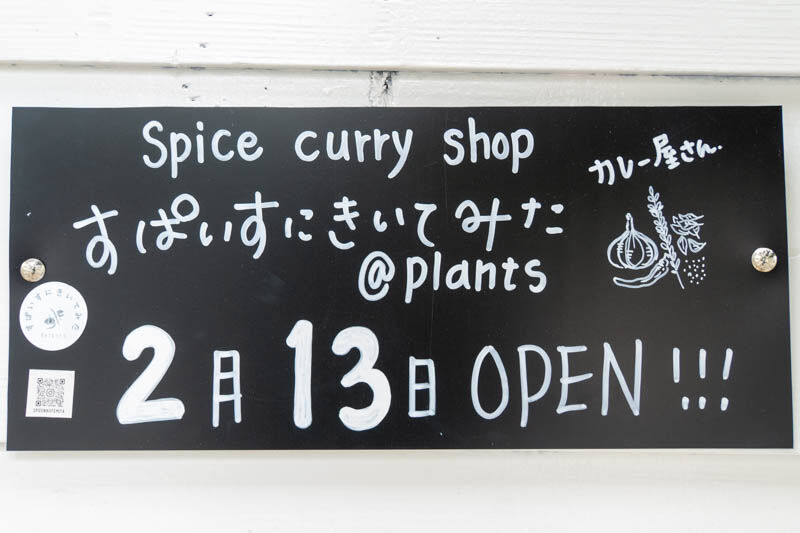 Spice curry shop
カレー屋さん.
すぱいすにきいてみた
@plants
2月13日 OPEN !!!
すぱいすにきいてみた